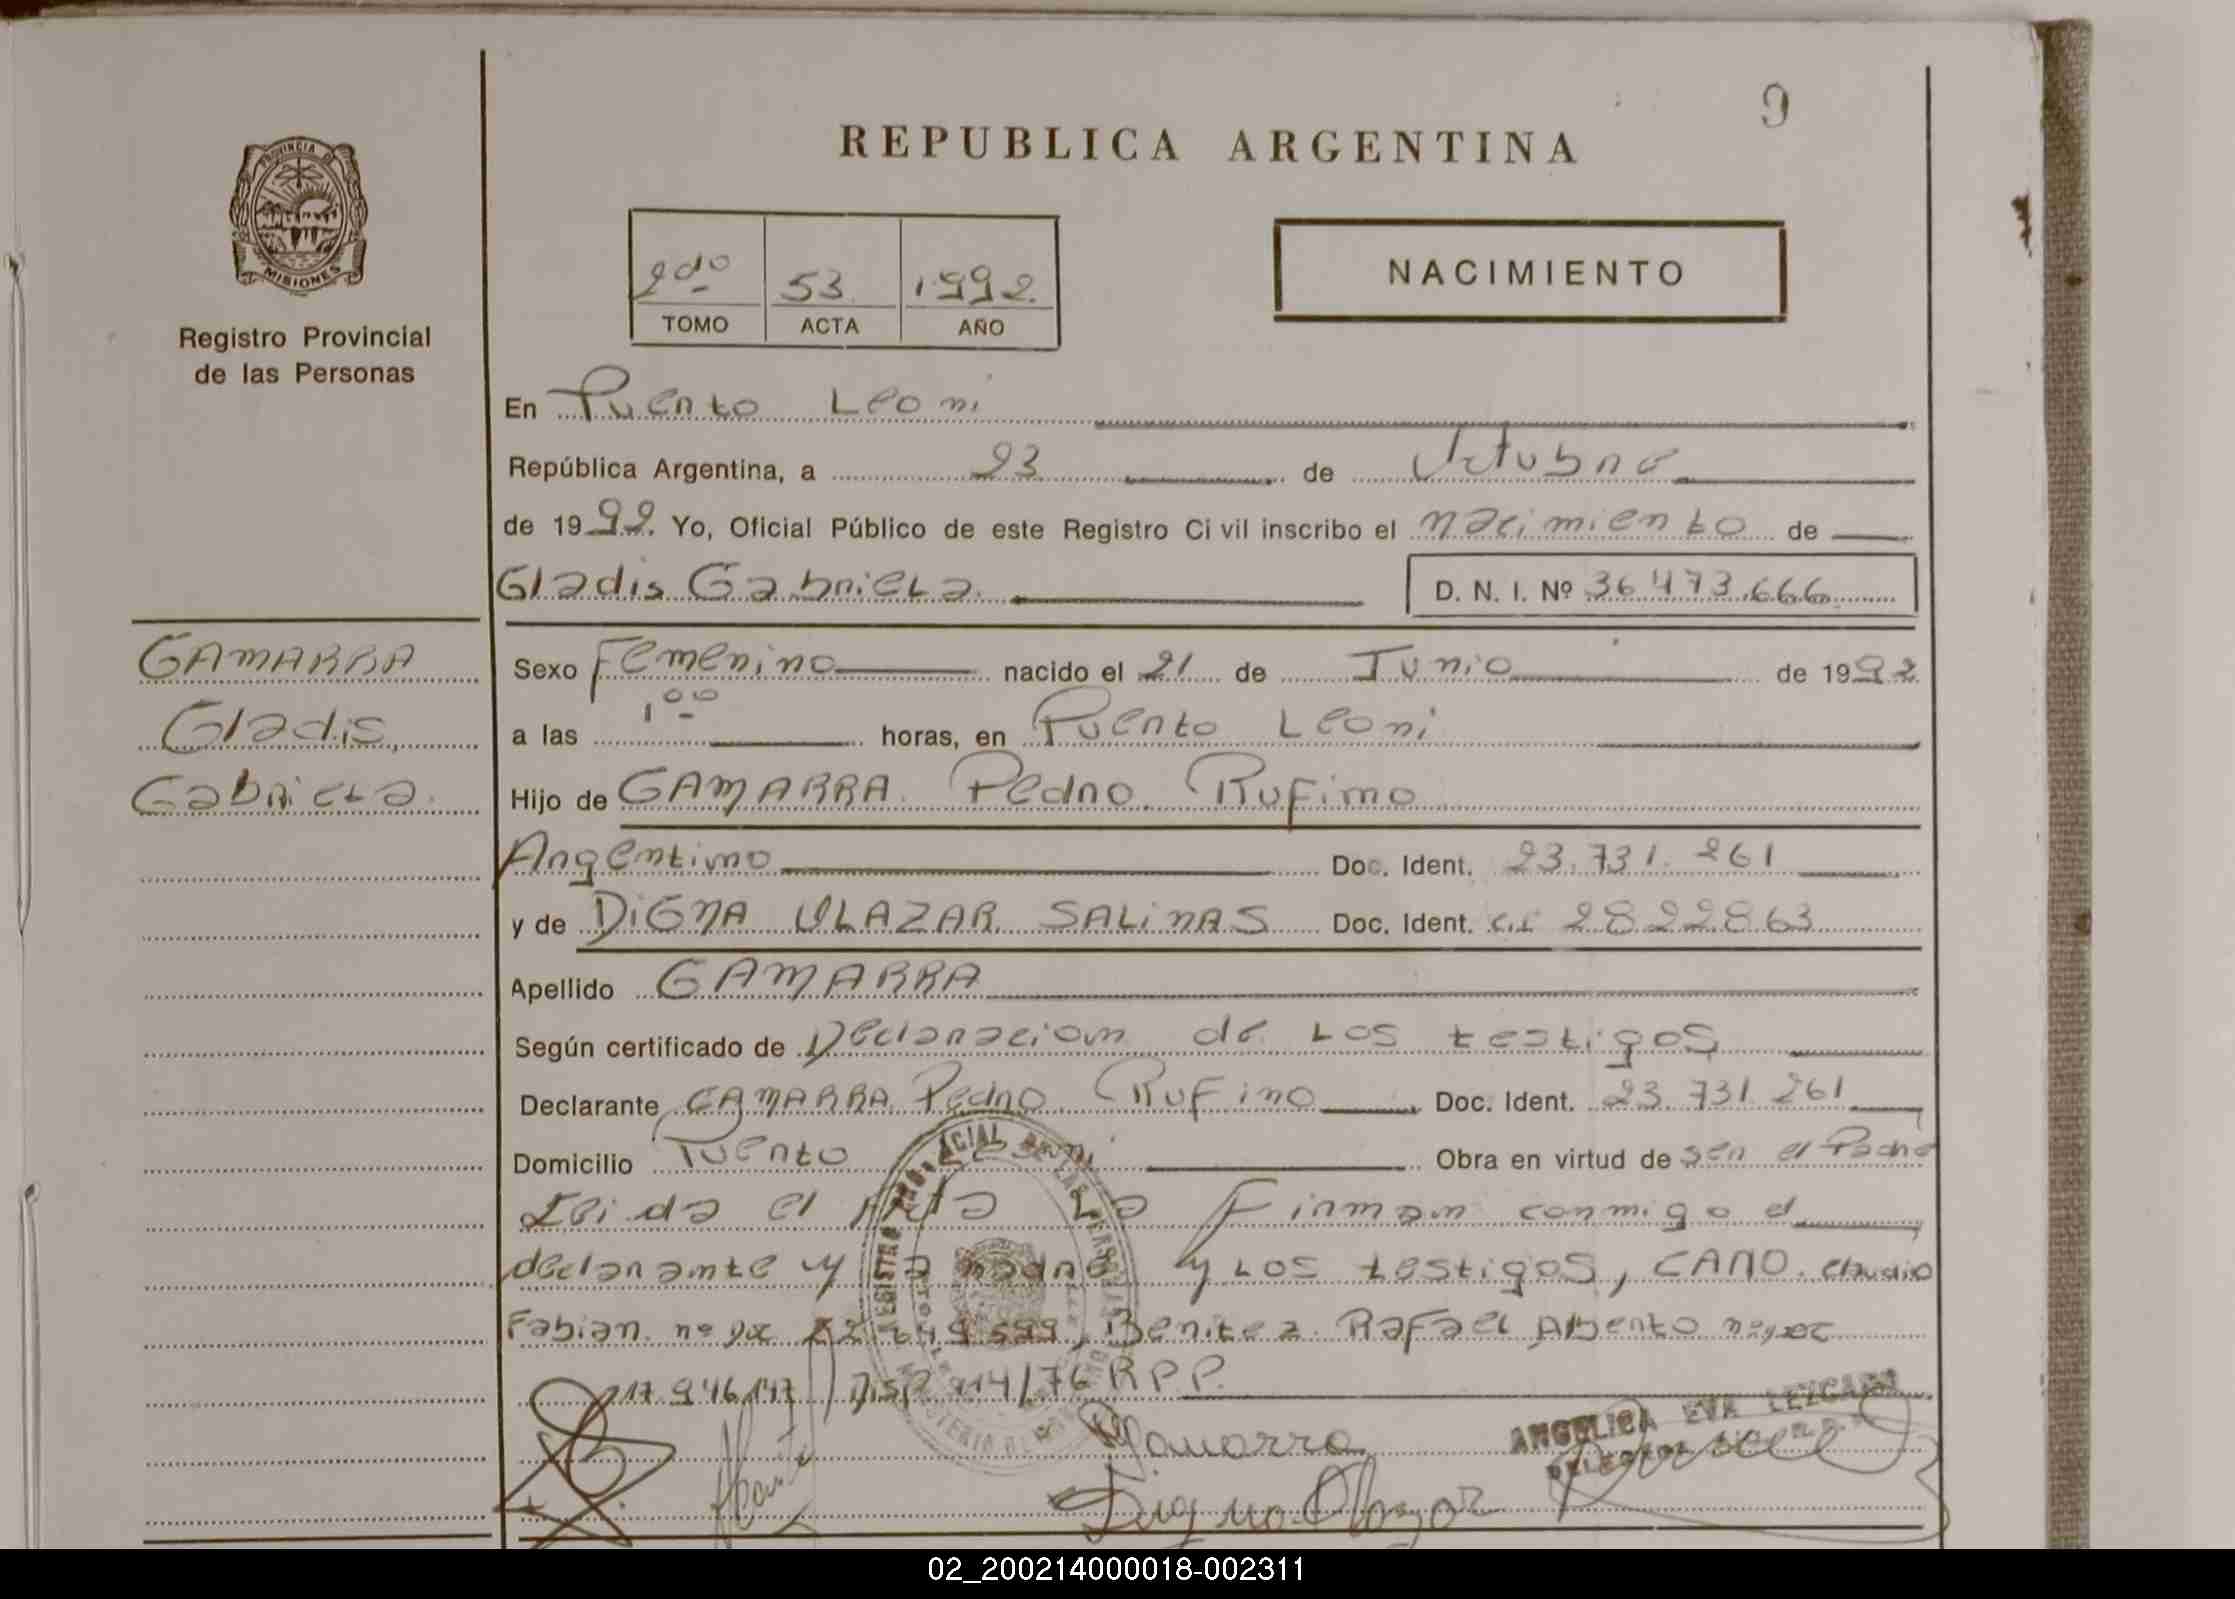 9
REPUBLICA ARGENTINA
PROVINCIA DE
MISIONES
2do 53 1992
TOMO ACTA AÑO
NACIMIENTO
Registro Provincial
de las Personas
En Puerto Leoni
República Argentina, a 23 de Octubre
de 1992. Yo, Oficial Público de este Registro Civil inscribo el nacimiento de
Gladis Gabriela D. N. I. Nº 36.473.666
GAMARRA
Gladis
Gabriela
Sexo Femenino nacido el 21 de Junio de 1992
a las 1 00 horas, en Puerto Leoni
Hijo de GAMARRA Pedro Rufino
Argentino Doc. Ident. 23.731.261
y de DiGNA OLAZAR SALiNAS Doc. Ident. c.i 2822863
Apellido GAMARRA
Según certificado de Declaracion de Los testigos
Declarante GAMARRA Pedro Rufino Doc. Ident. 23.731.261
Domicilio Puerto Leoni Obra en virtud de ser el Padre
Leida el Acta La Firman conmigo el
declarante y la madre y Los testigos, CANO. Claudio
Fabian nº 599, Benitez Rafael Alberto
17.946.147 Disp. 914/76 R P P.
ANGELICA EVA LEZCANO